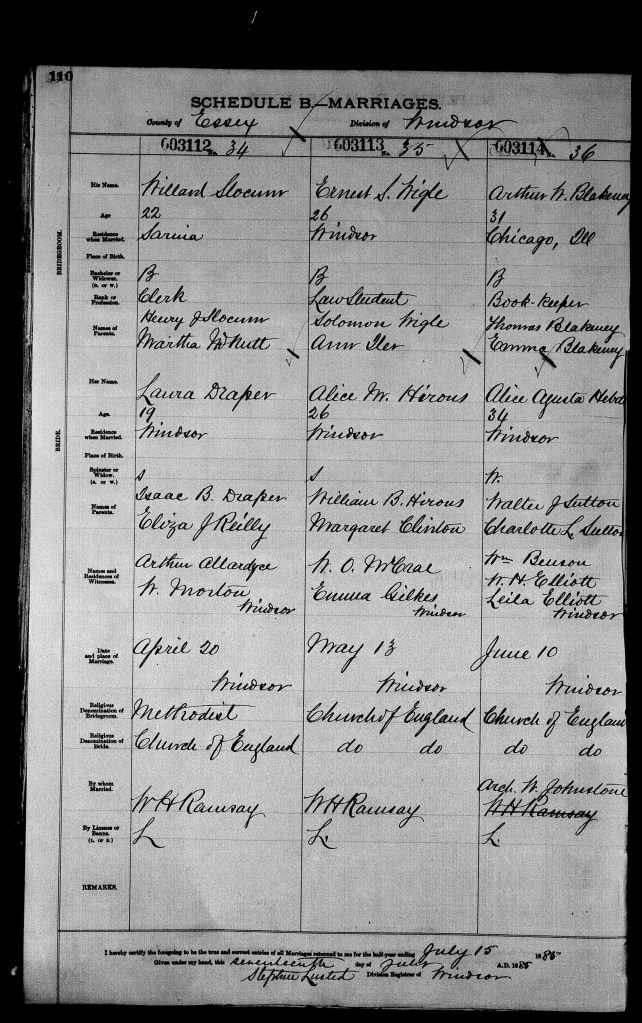 110
SCHEDULE B.—MARRIAGES.
County of Essex Division of Windsor
003112 No. 34 003113 No. 35 003114 No. 36
His Name. Willard Slocum Ernest S. Wigle Arthur W. Blakeney
Age 22 26 31
Residence when Married. Sarnia Windsor Chicago, Ill
Place of Birth.
Bachelor or Widower. (B. or W.) B B B
Rank or Profession. Clerk Law Student Book-keeper
Names of Parents. Henry J Slocum Solomon Wigle Thomas Blakeney
Martha McNutt Ann Iler Emma Blakeney
BRIDEGROOM.
Her Name. Laura Draper Alice M. Hirons Alice Agusta
Age. 19 26 34
Residence when Married. Windsor Windsor Windsor
Place of Birth.
Spinster or Widow. (S. or W.) S S W.
Names of Parents. Isaac B. Draper William B. Hirons Walter J Sutton
Eliza J Reilly Margaret Clinton Charlotte L. Sutton
BRIDE.
Names and Residences of Witnesses. Arthur Allardyce W. O. McCrae Wm Benson
W. Morton Emma Gilkes W. H. Elliott
Windsor Windsor Leila Elliott
Windsor
Date and place of Marriage. April 20 May 13 June 10
Windsor Windsor Windsor
Religious Denomination of Bridegroom. Methodist Church of England Church of England
Religious Denomination of Bride. Church of England do do do do
By whom Married. Arch. W. Johnstone
W H Ramsay W H Ramsay W H Ramsay
By License or Banns. (L. or B.) L L. L.
REMARKS.
I hereby certify the foregoing to be the true and correct entries of all Marriages returned to me for the half-year ending July 15 1885
Given under my hand, this seventeenth day of July A.D. 1885
Stephen Lusted Division Registrar of Windsor